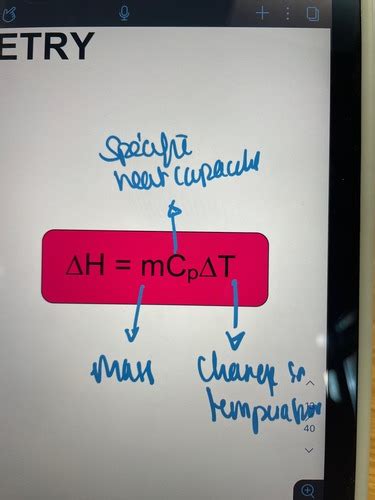 ETRY
Specific
heat capacity
ΔH = mCpΔT
mass
change in
temperature
40